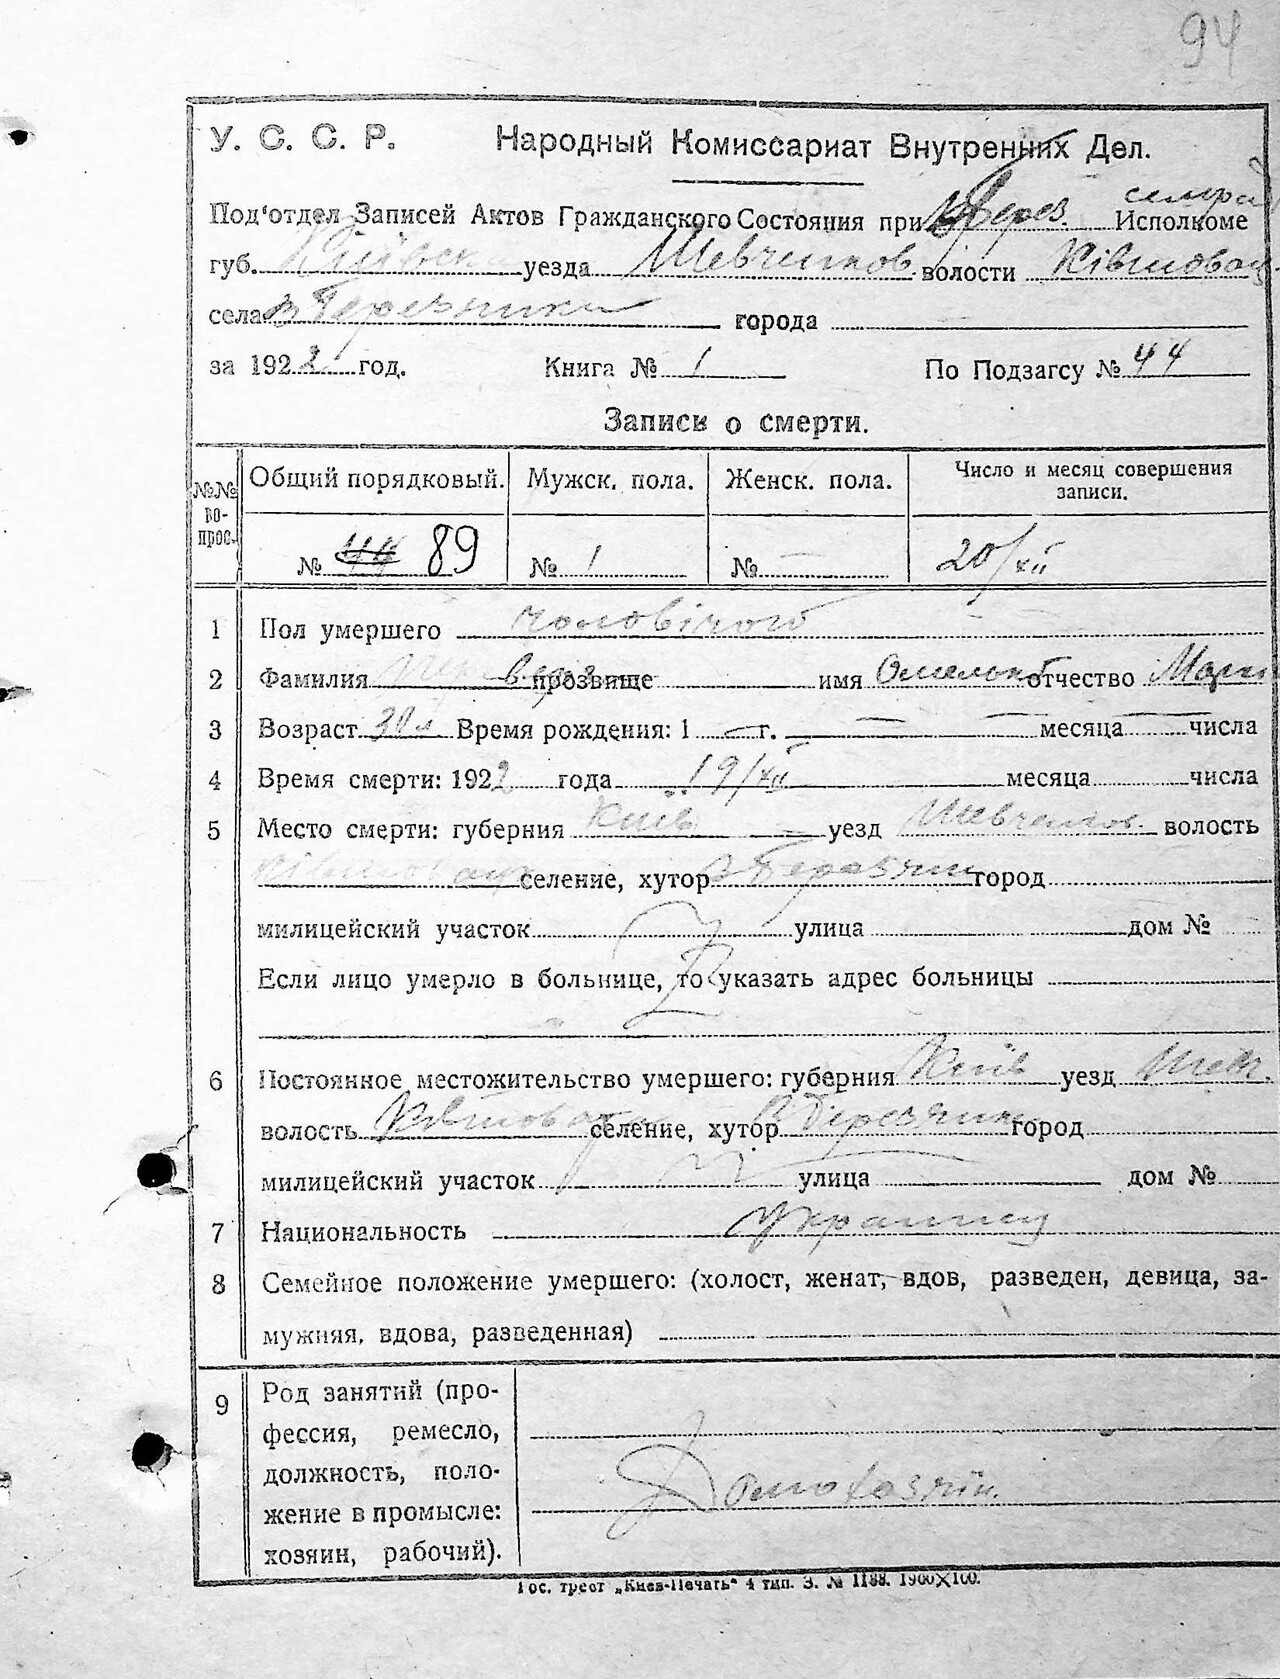 94
У. С. С. Р. Народный Комиссариат Внутренних Дел.
Под'отдел Записей Актов Гражданского Состояния при Исполкоме
губ. Київська уезда Шевченков волости
села В Березянки города
за 1922 год. Книга № 1 По Подзагсу № 44
Запись о смерти.
№№ вопрос. Общий порядковый. Мужск. пола. Женск. пола. Число и месяц совершения записи.
№ 44 89 № 1 № — 20/XII
1 Пол умершего чоловічого
2 Фамилия прозвище имя Омелько отчество
3 Возраст 30 л Время рождения: 1 — г. — месяца числа
4 Время смерти: 1922 года 19/XII месяца числа
5 Место смерти: губерния Київ уезд Шевченков. волость
селение, хутор В Березянки город
милицейский участок улица дом №
Если лицо умерло в больнице, то указать адрес больницы
6 Постоянное местожительство умершего: губерния Київ уезд Шевч.
волость селение, хутор В Березянки город
милицейский участок улица дом №
7 Национальность украинец
8 Семейное положение умершего: (холост, женат, вдов, разведен, девица, за-
мужняя, вдова, разведенная)
9 Род занятий (про-
фессия, ремесло,
должность, поло-
жение в промысле:
хозяин, рабочий).
Домохазяїн.
Гос. трест „Киев-Печать" 4 тип. З. № 1188. 1900X100.